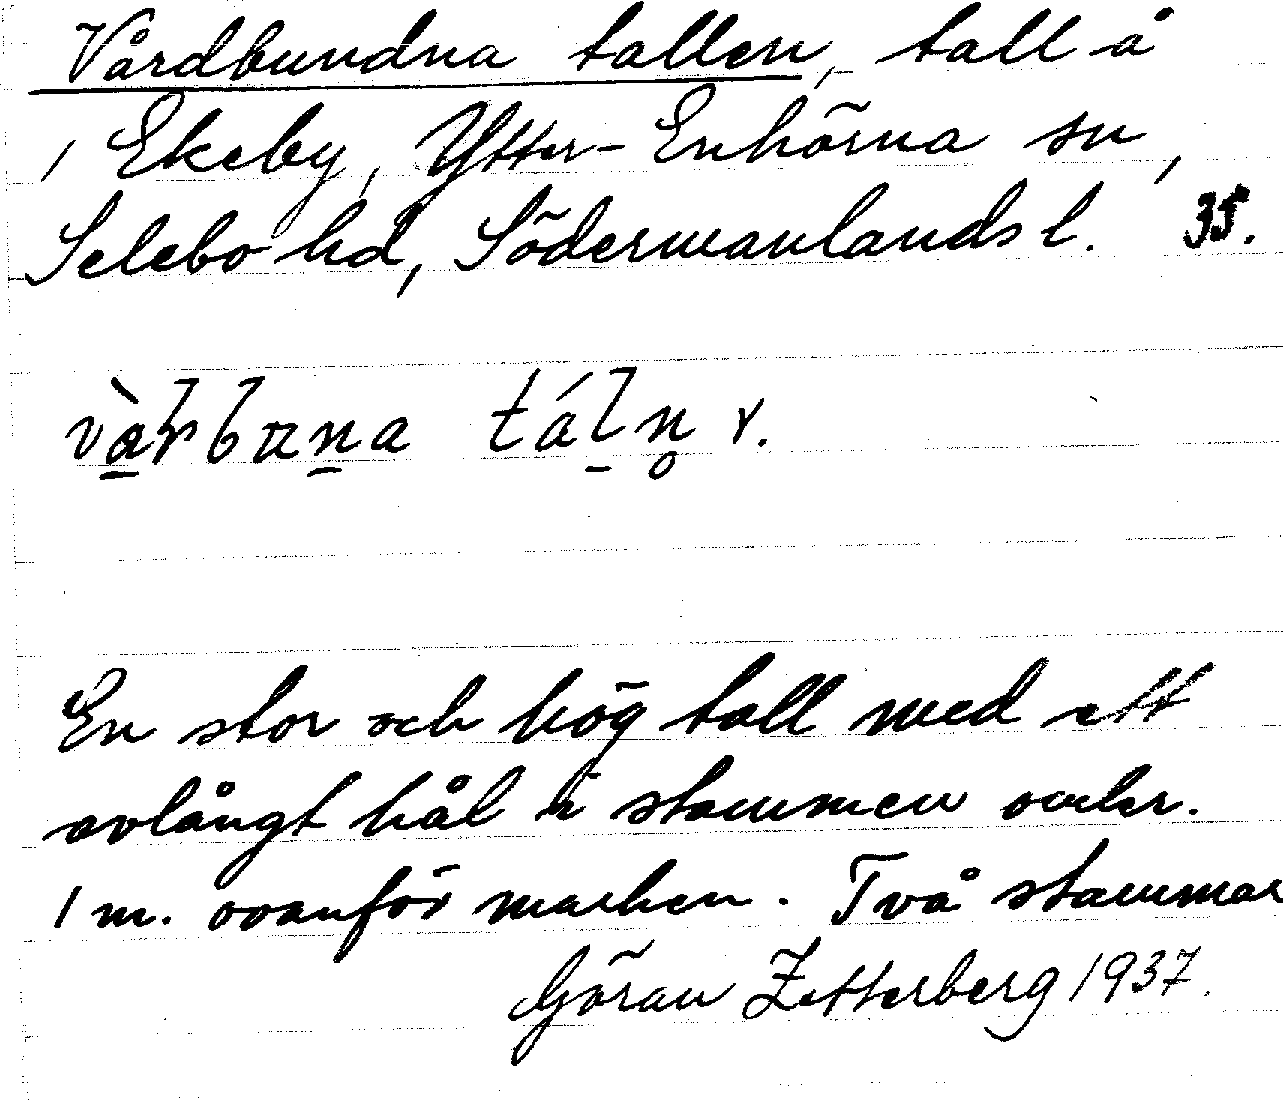 Vårdbundna tallen, tall å
1 Ekeby, Ytter-Enhörna sn,
Selebo hd, Södermanlands l. 35.
En stor och hög tall med ett
avlångt hål i stammen under.
1 m. ovanför marken. Två stammar
Göran Zetterberg 1937.